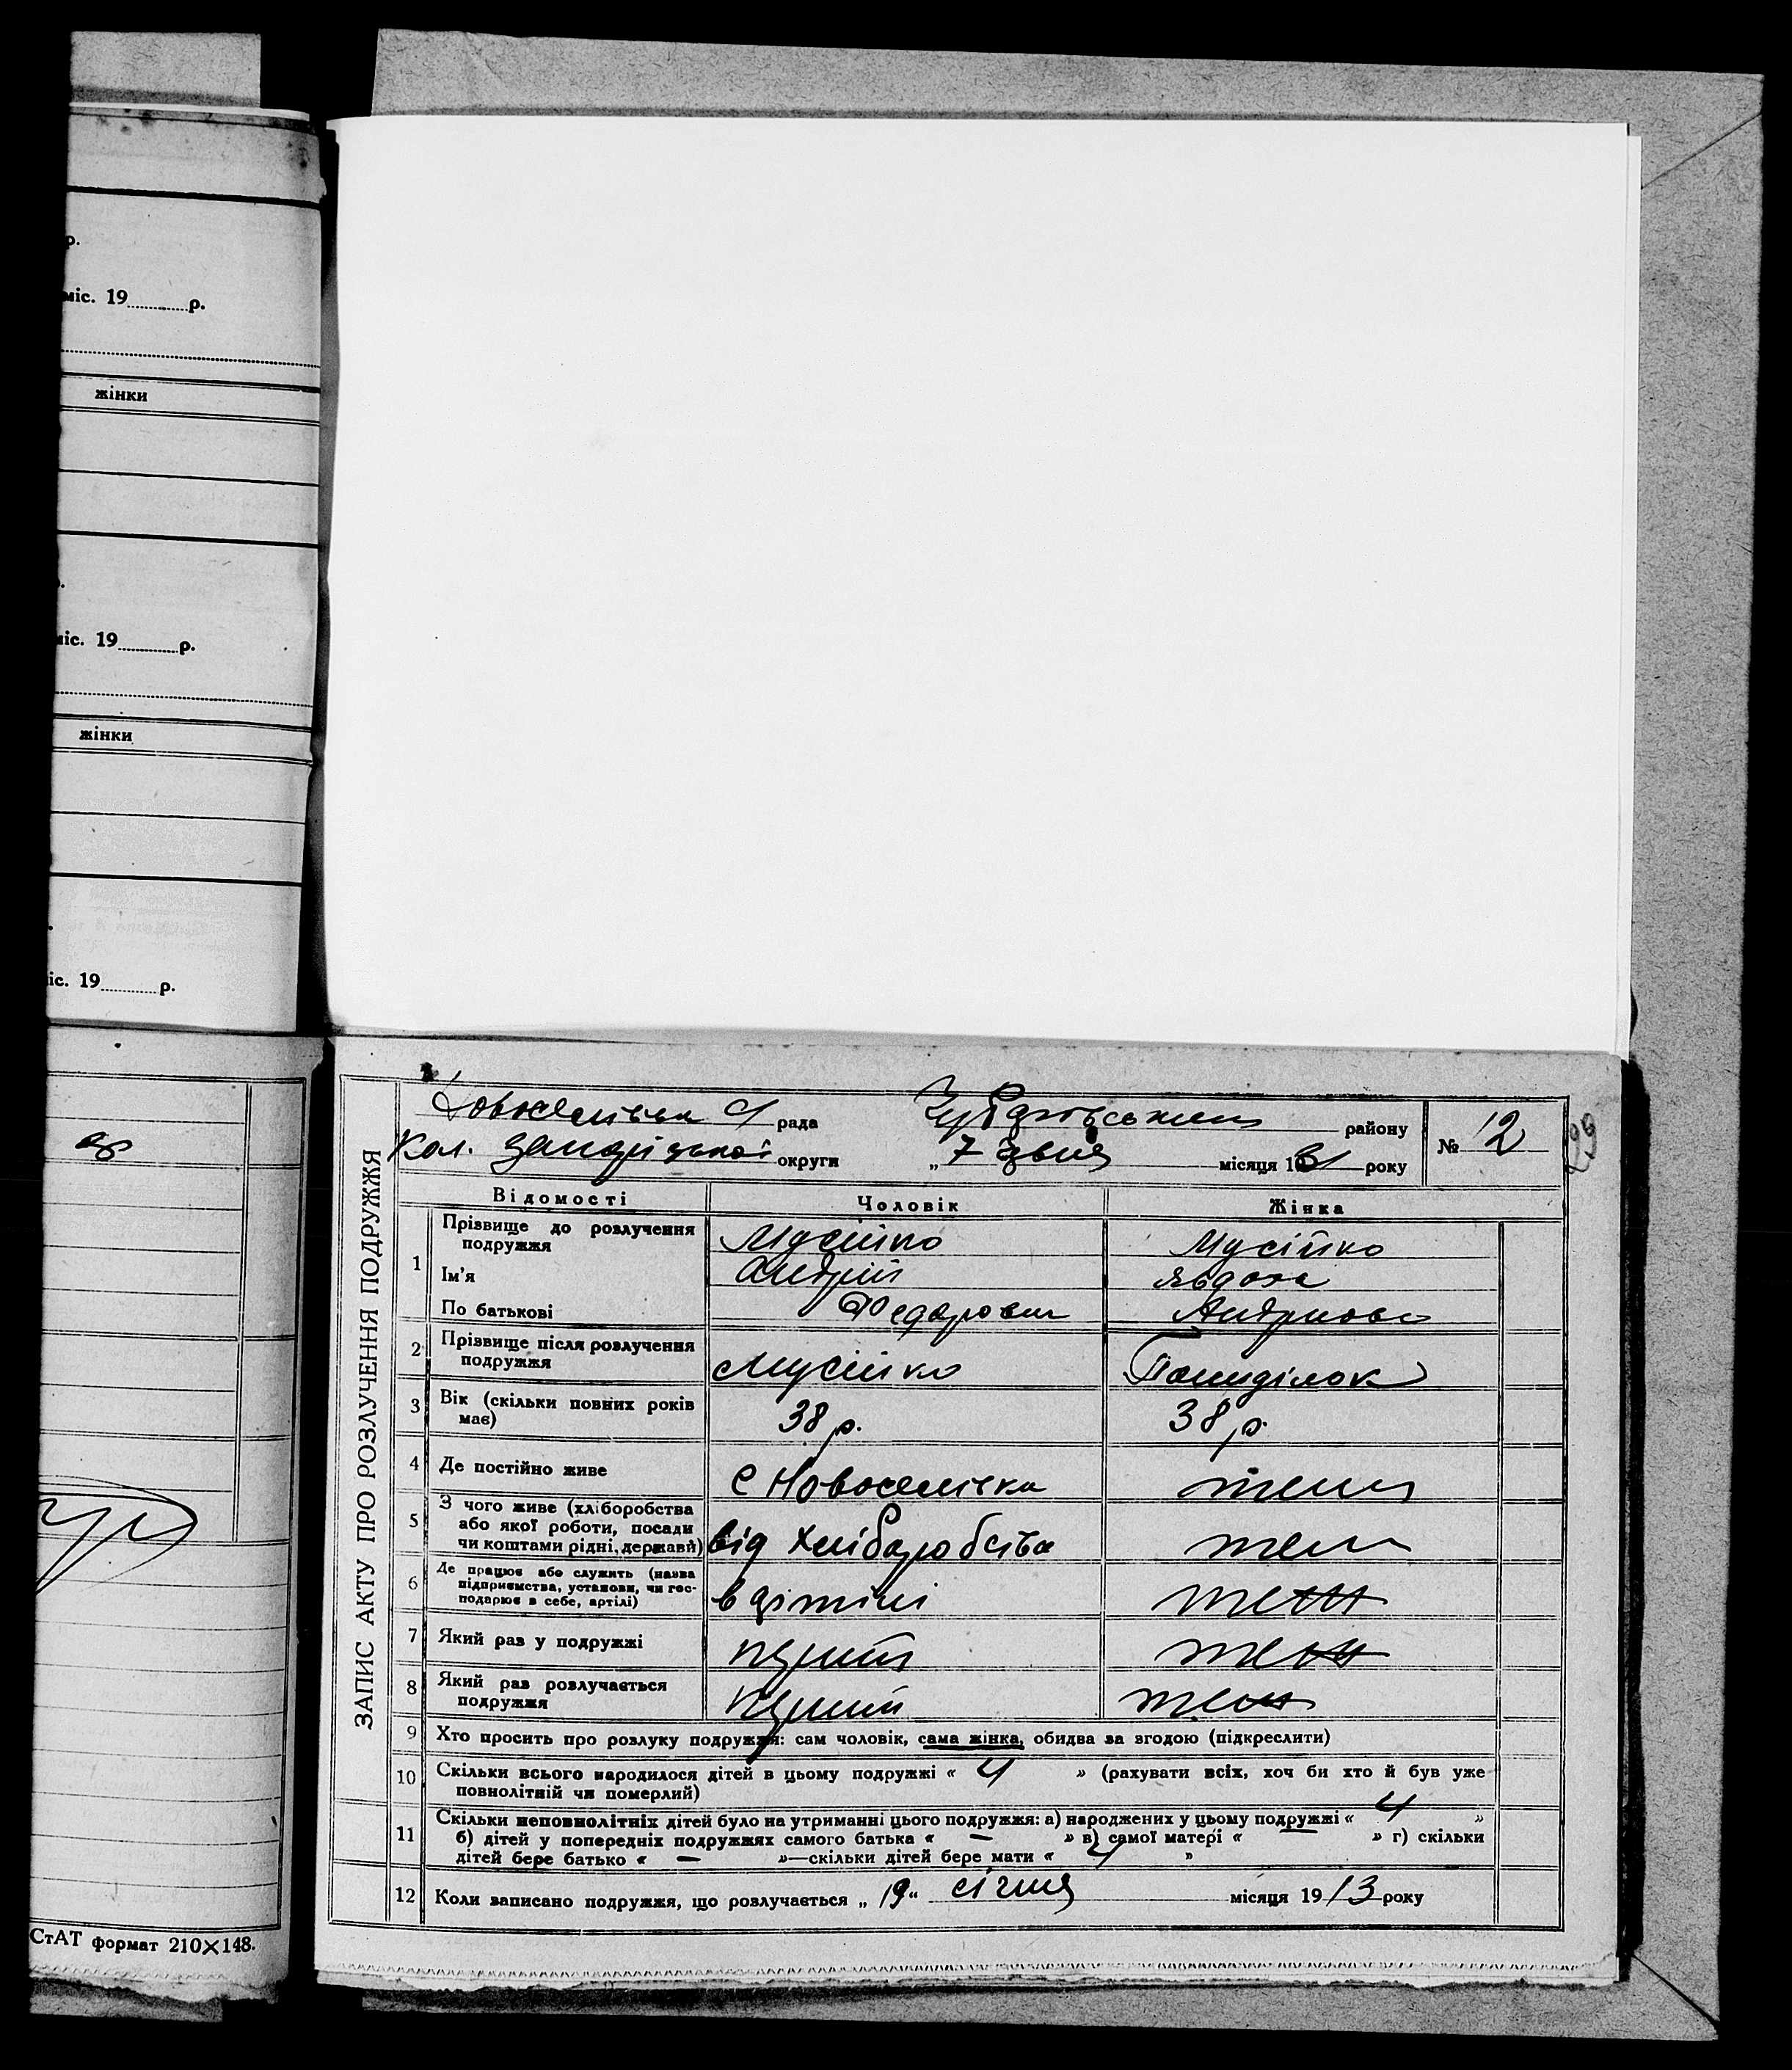 р.
міс. 19 р.
жінки
міс. 19 р.
жінки
іс. 19 р.
СтАТ формат 210×148.
ЗАПИС АКТУ ПРО РОЗЛУЧЕННЯ ПОДРУЖЖЯ
рада Чубарівський району № 12
29
Кол. запоріцької округи „7 місяця 1931 року
Відомості Чоловік Жінка
1 Прізвище до розлучення подружжя Мусійко Мусійко
Ім'я Андрій Явдоха
По батькові Федорович Андріова
2 Прізвище після розлучення подружжя Мусійко Пониділок
3 Вік (скільки повних років має) 38 р. 38 р.
4 Де постійно живе С Новоселівка теж
5 З чого живе (хліборобства або якої роботи, посади чи коштами рідні, держави) від хліборобства теж
6 Де працює або служить (назва підприємства, установи, чи господарює в себе, артілі) в артілі теж
7 Який раз у подружжі перший теж
8 Який раз розлучається подружжя перший теж
9 Хто просить про розлуку подружжя: сам чоловік, сама жінка, обидва за згодою (підкреслити)
10 Скільки всього народилося дітей в цьому подружжі « 4 » (рахувати всіх, хоч би хто й був уже
повнолітній чи померлий)
11 Скільки неповнолітніх дітей було на утриманні цього подружжя: а) народжених у цьому подружжі « 4 »
б) дітей у попередніх подружжях самого батька « — » в) самої матері « » г) скільки
дітей бере батько « — »—скільки дітей бере мати « 4 »
12 Коли записано подружжя, що розлучається „ 19 “ січня місяця 1913 року